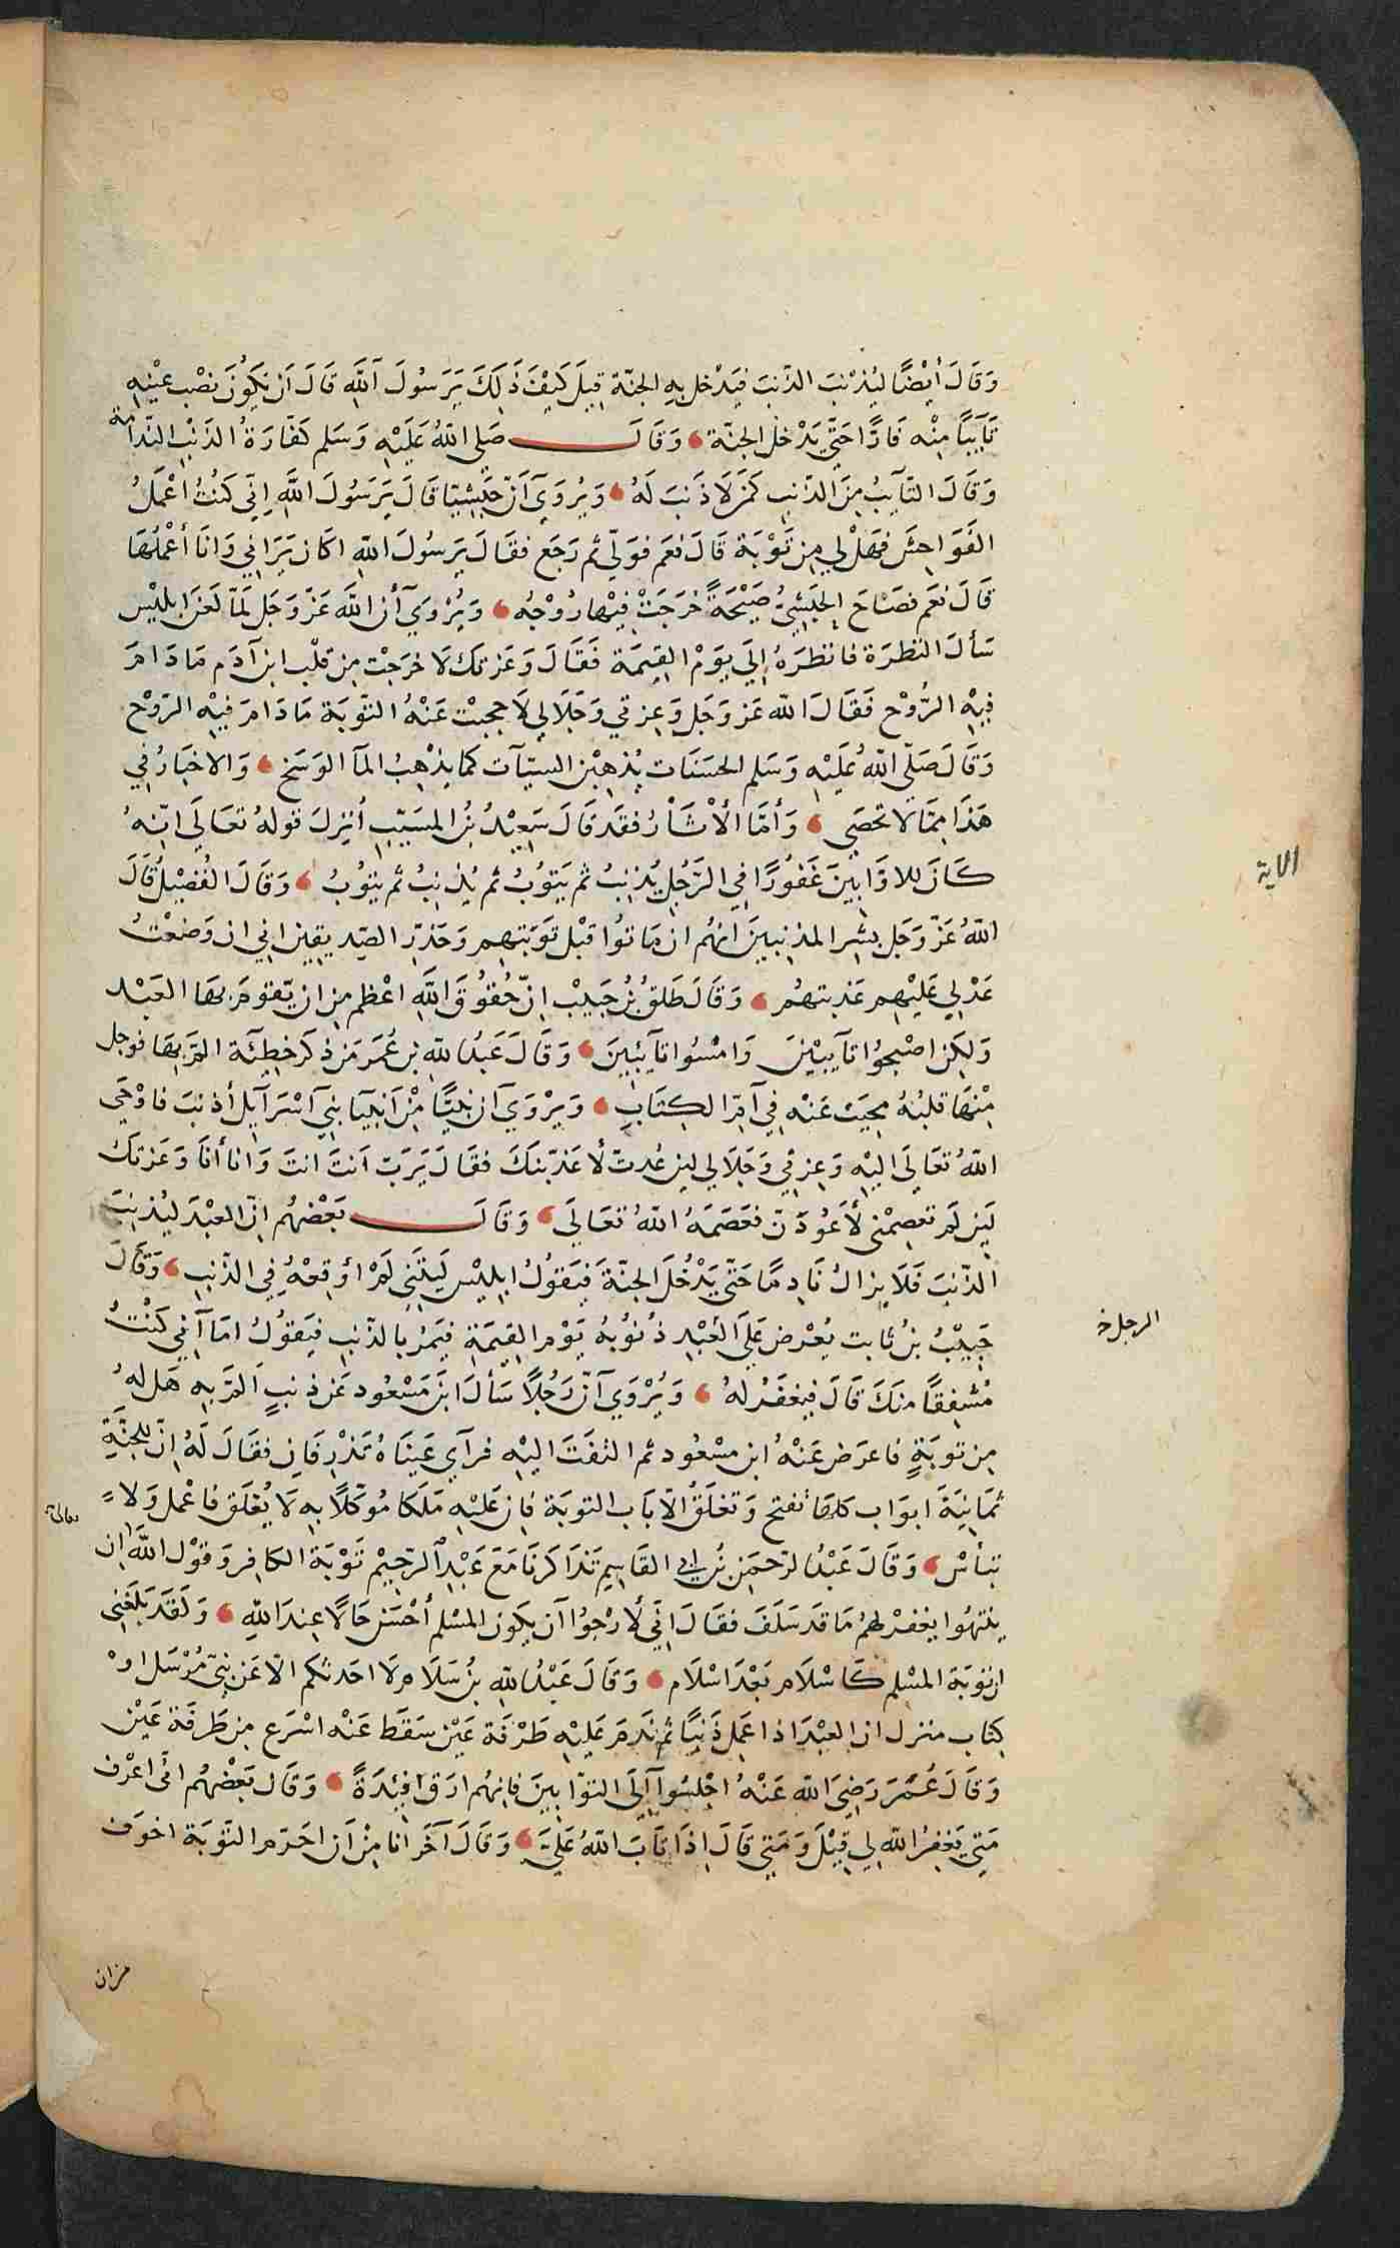 وَقَالَ أَيْضًا ليُذْنبَ الذّنبَ فَيَدْخل بِهِ الجنّة قِيلَ كَيْفَ ذَلِكَ يَرَسُولَ اللَّهِ قَالَ اَن يَكُونَ نصْب عيْنِهِ
تَآيبًا مِنْه فَارًّا حَتّي يَدْخلَ الجنّة وَقَالَ صَلى اللهُ عَلَيْهِ وَسَلم كَفّارَةُ الذَنْبِ النّدامة
وَقَالَ التّآيبُ مِنَ الذّنبِ كَمَن لَا ذَنبَ لَهُ وَيُروَيَ أنّ حَبَشِيّا قَالَ يَرَسُولَ اللَّهِ اِنّي كنْتُ أعْمَلُ
الفَوَاحِشَ فهَلْ لي مِن تَوْبَة قَالَ نعَم فوَلّي ثم رَجَع فقَالَ يرَسُولَ اللهِ اكَان يَرَاني وَانَا أعْملُهَا
قَالَ نعَم فصَاحَ الحَبَشِيُّ صَيْحَةً خرَجَتْ فِيْهَا رُوْحُه وَيُرْوَيَ أن اللَّهَ عَزّ وَجَل لمّا لَعَنَ ابليْس
سَألَ النّظرَة فانظَرَهُ إلَي يَوْم القِيمَة فَقَالَ وَعَزتكَ لَا خرَجْت مِن قلْب ابن آدَم مَا دَامَ
فِيْهِ الرُّوْح فَقَالَ الله عَز وَجَل وَعِزتي وَجَلَالي لَا حجبْت عَنْهُ التوّبَة مَا دَامَ فيْهِ الرّوْح
وَقَالَ صَلّى اللهُ عَلَيْهِ وَسَلم الحسَنَات يُذهِبْن السيّآت كَمَا يذْهِبُ المآ الوَسَخ وَالاخبَارُ في
هَذَا مِمّا لَا تحْصَي وَأمّا الأثَارُ فقَد قَالَ سَعِيْدُ بنُ المسَيّبِ أنزِلَ قولهُ تعَالَي انّهُ
كَانَ للاوَّابِينَ غَفُورًا في الرّجُل يُذنِبُ ثم يَتوُبُ ثم يُذنِبُ ثم يتوُبُ وَقَالَ الفُضَيْلُ قَالَ
الايه
اللهُ عَزّ وَجَل بشِّر المذنِبِينَ انهُم ان مَا تابُوا قبْل تَوبَتهِم وَحَذِّرِ الصِّدِيقِين اني ان وَضعْتُ
عَدْلي عَليْهِم عَذبتهُم وَقَالَ طَلقُ بنُ حَبِيْب اِنّ حُقوُقَ اللَّهِ اعْظم مِن ان يّقومَ بهَا العَبْد
وَلكِن اصْبِحُوا تآيبيْنَ وَامْسُوا تآيبِيْنَ وَقَالَ عَبدُ اللّهِ بن عُمَرَ مَن ذكرَ خطِيْئَة المَّ بهَا فوَجل
مِنْهَا قلبُهُ مُحِيَتْ عَنْهِ في اَمِّ الكِتَابِ وَيرْوَيَ ان نَبيًّا مِنْ اَنبيآ بني آسْرَآيل أذنبَ فاوْحَي
اللهُ تعَالَي اليْهِ وَعِزتي وَجَلَالي لين عُدتّ لأعَذّبنكَ فقَالَ يَرَبّ اَنتَ انتَ وَانا أنَا وَعَزتكَ
لَين لَم تعصِمْني لأعُودَنّ فعَصَمَهُ اللهُ تعَالَي وَقَالَ بَعْضهُم اِنّ العبْدَ ليُذنِبَ
الذّنبَ فَلَا يزَالُ نَادِمًا حَتّي يَدْخُلَ الجنّةَ فيَقولُ ابليْس لَيتَني لَمْ أوقِعْهُ في الذّنبِ وَقَالَ
حَبِيْبُ بنُ ثابت يُعْرض عَلَي العَبْدِ ذُنوُبُهُ يَوْم القِيمَةِ فيَمُرُ بالذّنبِ فيَقوُلُ امَا آني كنْتُ
الرجل خ
مُشْفِقًا منكَ قَالَ فيغفَرُ لهُ وَيُرْوَيَ أنّ رَجُلاً سَألَ ابن مَسْعُود عَن ذنبٍ اَلمَّ بهِ هَل لهُ
مِن توبَةٍ فاعرَض عَنْهُ ابن مسْعُود ثم التفَتَ اليْهِ فرآي عَينَاهُ تَذْرِفَان فقَالَ لَهُ اِنّ للجنَّةِ
ثمَانِيَةَ ابوَاب كلهَا تفتح وَتغلَقُ الّا بَاب التوبَة فإن عَليْهِ مَلَكا مُوَكّلًا بهِ لَا يُغلَق فاعْمل وَلا
تيأسْ وَقَالَ عَبْدُ الرّحمَن بنُ ابي القاسِم تَذَاكرنَا مَعَ عَبْدِ الرّحِيْم تَوْبَةَ الكافِر وَقوْل اللَّه ان
تعالى
ينتهُوا يغفرْ لهُم مَا قَد سَلَفَ فقَالَ اِنّي لَأرْجُوا آن يكُون المسْلم أحْسَن حَالًا عِندَ اللهِ وَلقَد بَلَغَني
ان توبَة المسْلم كَاسْلَام بَعْدَ اسْلَام وَقَالَ عَبْدُ اللّهِ بنُ سَلَام لَا احَدثكم الّا عَن نبيّ مُرْسَل اوْ
كِتاب منزل ان العبْدَ اذا عَمِل ذَنبًا ثم نَدمَ عَليْهِ طَرْفَة عَيْن سَقَط عَنْه اسْرَع مِن طَرفَة عَيْن
وَقَالَ عُمَرَ رَضِيَ اللّه عَنْهُ اجْلِسُوآ اِلَى التوّابينَ فانهُم ارَق افيْدَةً وَقَال بَعْضهُم انّي اعْرف
مَتي يَغفِرُ اللّه لي قِيْلَ وَمَتي قَالَ اِذَا تَابَ اللّهُ عَلَيَّ وَقَالَ آخَر انا مِنْ اَن احَرَم التوّبَة اخوَف
من ان